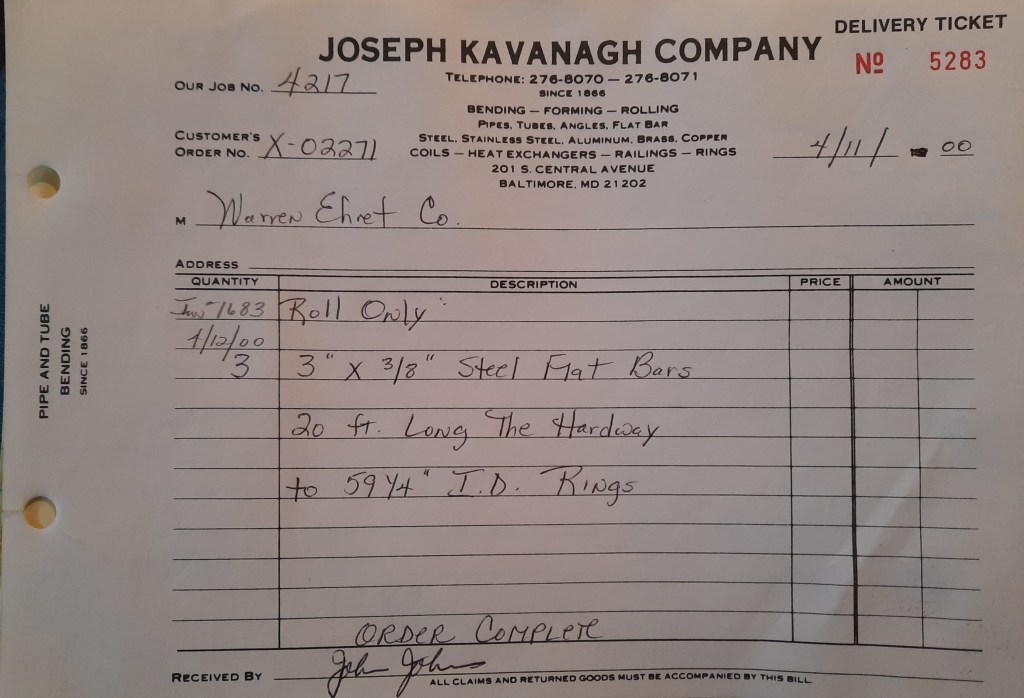 DELIVERY TICKET
JOSEPH KAVANAGH COMPANY
Nº 5283
TELEPHONE: 276-8070 — 276-8071
SINCE 1866
OUR JOB NO. 4217
BENDING — FORMING — ROLLING
PIPES, TUBES, ANGLES, FLAT BAR
CUSTOMER'S
ORDER NO. X-02271
STEEL, STAINLESS STEEL, ALUMINUM, BRASS, COPPER
COILS — HEAT EXCHANGERS — RAILINGS — RINGS
4/11/ 00
201 S. CENTRAL AVENUE
BALTIMORE, MD 21202
M Warren Ehret Co.
ADDRESS
QUANTITY DESCRIPTION PRICE AMOUNT
1683 Roll Only
4/12/00
3 3" X 3/8" Steel Flat Bars
20 ft. Long The Hardway
to 59 1/4" I.D. Rings
ORDER COMPLETE
RECEIVED BY John Johns
ALL CLAIMS AND RETURNED GOODS MUST BE ACCOMPANIED BY THIS BILL
PIPE AND TUBE
BENDING
SINCE 1866